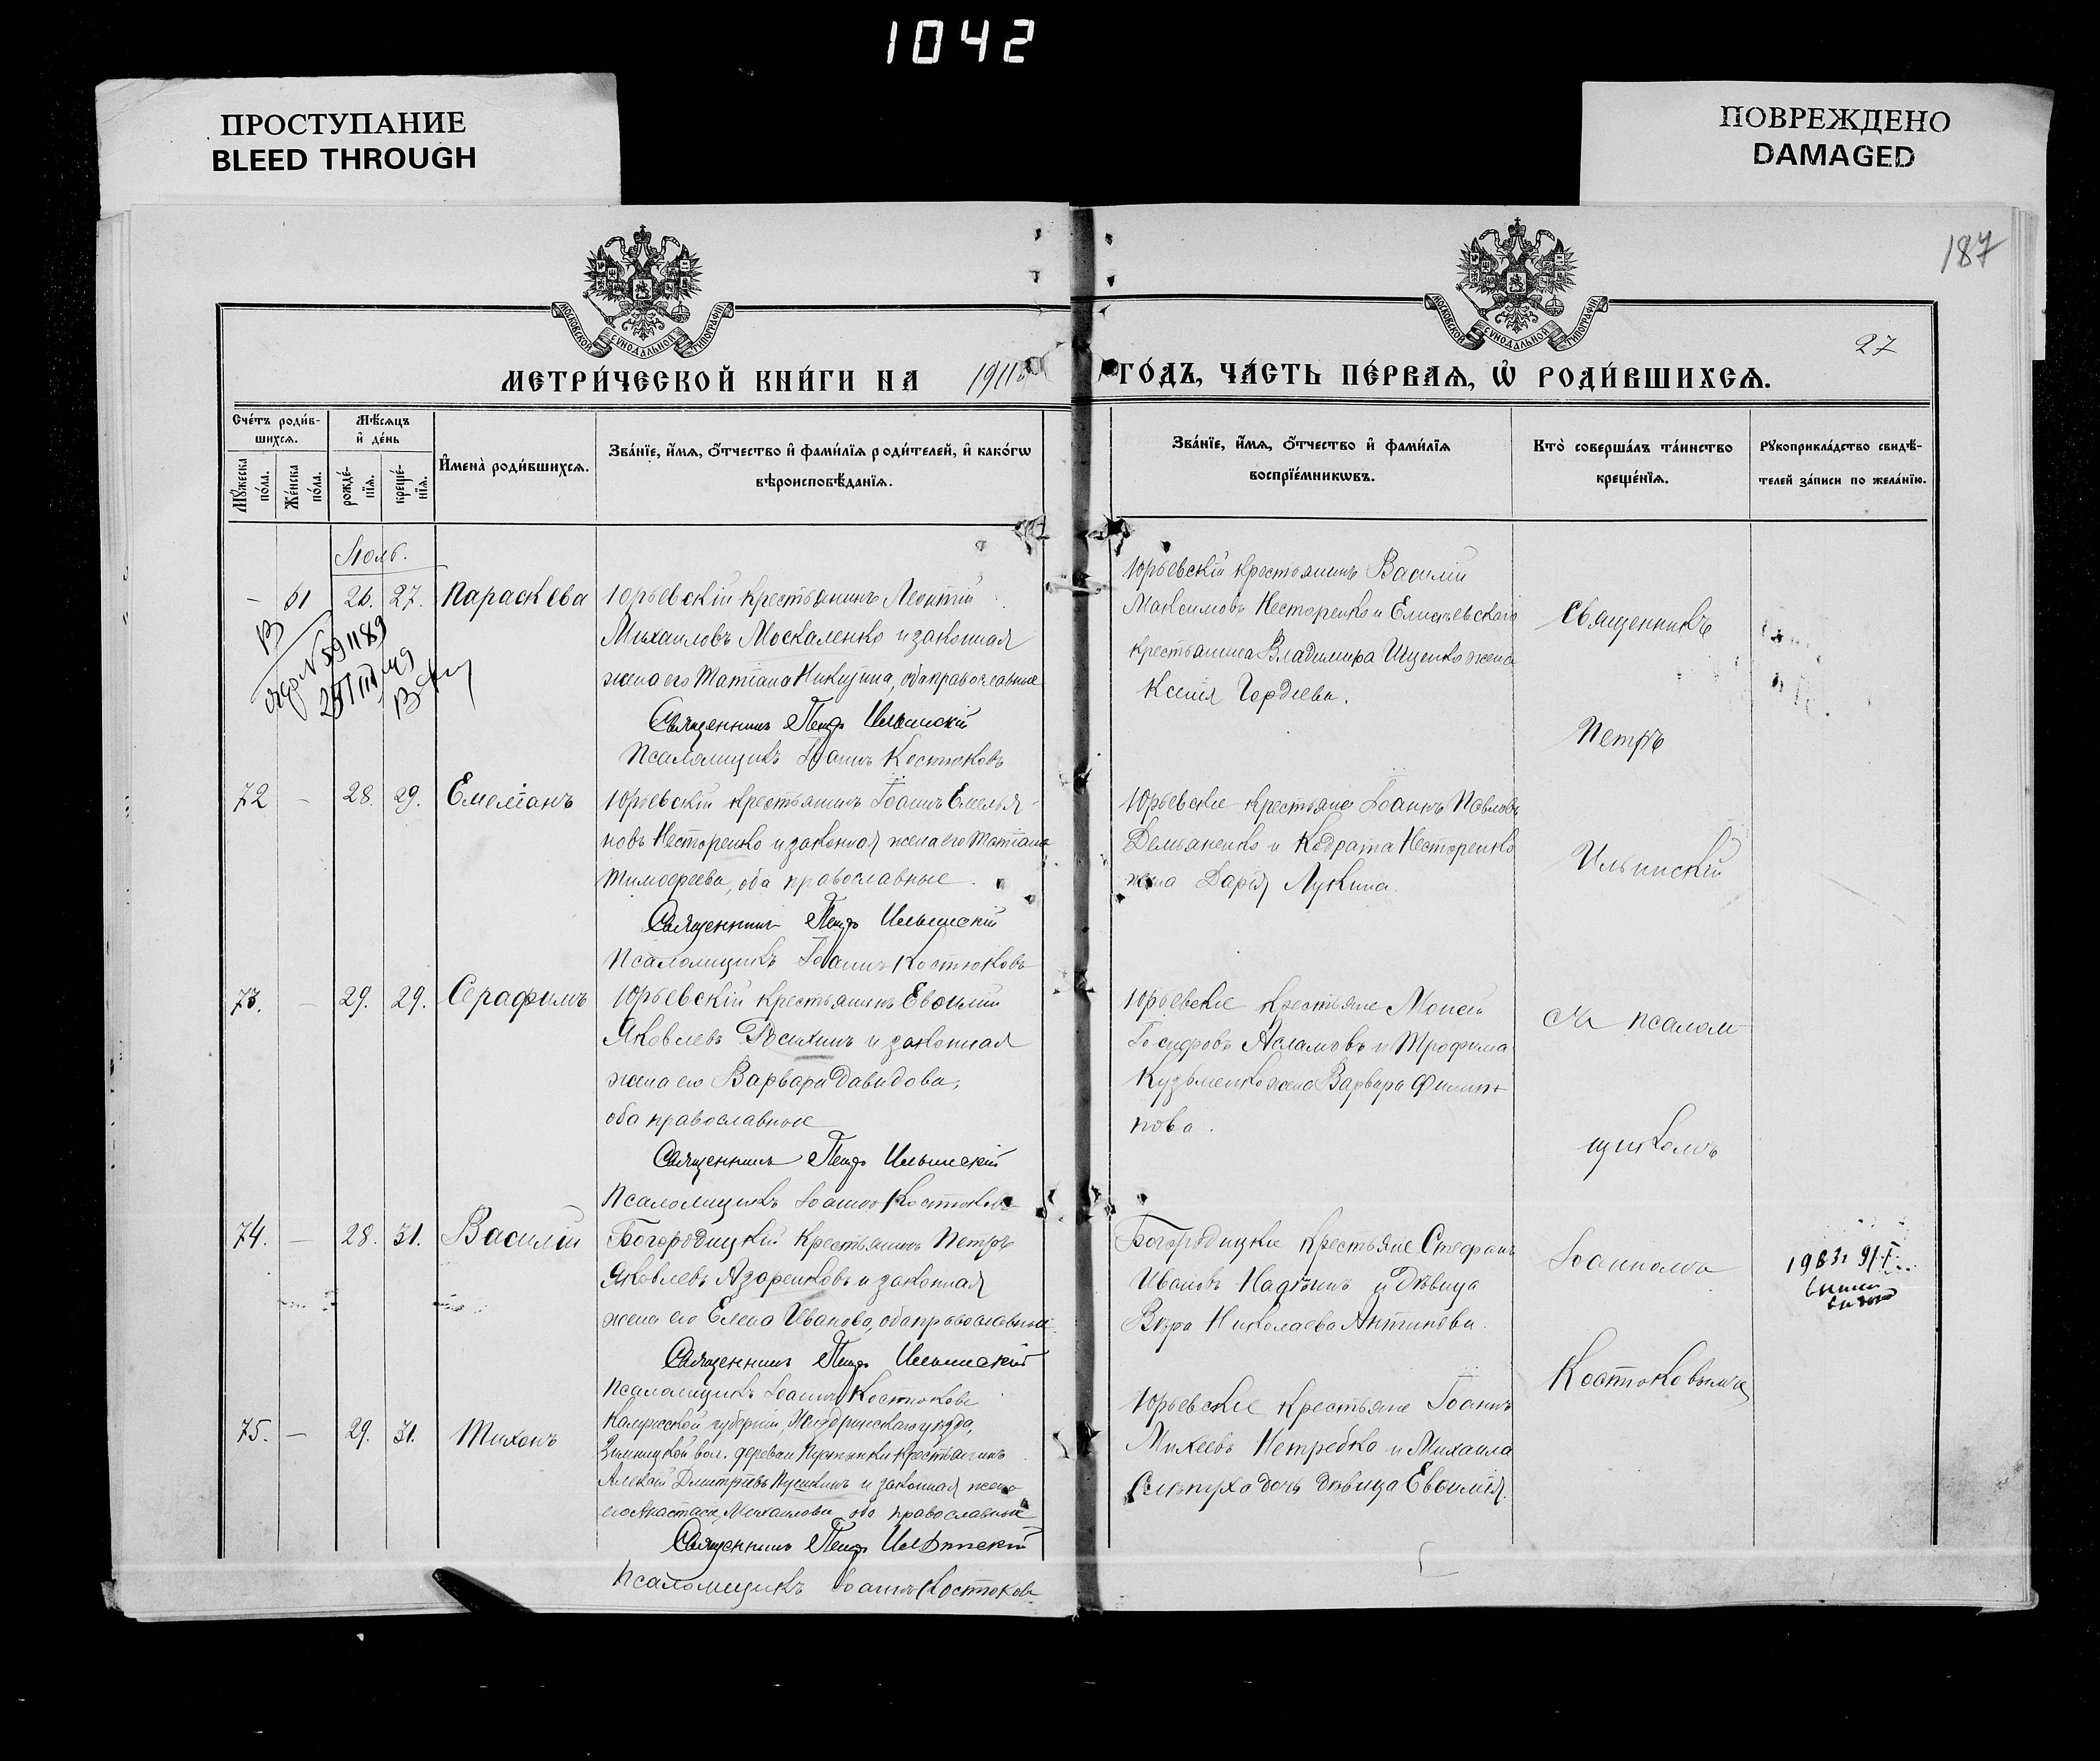 1042
ПРОСТУПАНИЕ
BLEED THROUGH
ПОВРЕЖДЕНО
DAMAGED
187
27
МОСКОВСКОЙ СѴНОДАЛЬНОЙ ТИПОГРАФІИ
МОСКОВСКОЙ СѴНОДАЛЬНОЙ ТИПОГРАФІИ
МЕТРИ́ЧЕСКОЙ КНИ́ГИ НА 1911 ГО́ДЪ, ЧА́СТЬ ПЕ́РВАѦ, Ѡ҆ РОДИ́ВШИХСѦ.
Сче́тъ роди́в-
шихсѧ.
Мѣ́сѧцъ
и҆ де́нь
Мꙋ́жеска по́ла.
Же́нска по́ла.
рожде́-
нїѧ.
креще́-
нїѧ.
И҆мена̀ роди́вшихсѧ.
Зва́нїе, и҆́мѧ, ѻ҆́тчество и҆ фами́лїѧ роди́телей, и҆ како́гѡ
вѣроисповѣ́данїѧ.
Зва́нїе, и҆́мѧ, ѻ҆́тчество и҆ фами́лїѧ
воспрїе́мникѡвъ.
Кто̀ соверша́лъ та́инство
креще́нїѧ.
Рꙋкоприкла́дство свидѣ́-
телей за́писи по жела́нїю.
Іюль.
— 61 26. 27. Параскева
Юрьевскій крестьянинъ Леонтій
Михаиловъ Москаленко и законная
жена его Татіана Никитина, оба православные
Священникъ Петръ Ильинскій
Псаломщикъ Іоаннъ Костюковъ
Юрьевскій крестьянинъ Василій
Максимовъ Нестеренко и Елисѣевскаго
крестьянина Владимира Ищенко жена
Ксенія Гордеева.
72 — 28. 29. Емеліанъ
Юрьевскій крестьянинъ Іоаннъ Емелья-
новъ Нестеренко и законная жена его Татіана
Тимоѳеева, оба православные.
Священникъ Петръ Ильинскій
Псаломщикъ Іоаннъ Костюковъ
Юрьевские крестьяне Іоаннъ Павловъ
Демьяненко и Кодрата Нестеренко
жена Дарія Лукина.
73. — 29. 29. Серафимъ
Юрьевскій крестьянинъ Евѳимій
Яковлевъ и законная
жена его Варвара Давидова,
оба православные
Священникъ Петръ Ильинскій
Псаломщикъ Іоаннъ Костюковъ
Юрьевские крестьяне Моисей
Іосифовъ Асламовъ и Трофима
Кузьменко жена Варвара Филип-
пова.
74. — 28. 31. Василій
Богородицкій крестьянинъ Петръ
Яковлевъ Азаренковъ и законная
жена его Елена Иванова, оба православные
Священникъ Петръ Ильинскій
Псаломщикъ Іоаннъ Костюковъ
Богородицкие крестьяне Стефанъ
Ивановъ и дѣвица
Вѣра Николаева
75. — 29. 31. Тихонъ
Калужской губерніи, Жиздринскаго уѣзда,
вол. деревни крестьянинъ
Алексѣй Дмитріевъ и законная жена
его Анастасія Михаилова, оба православные
Священникъ Петръ Ильинскій
Псаломщикъ Іоаннъ Костюковъ
Юрьевские крестьяне Іоаннъ
Михеевъ Нетребко и Михаила
дочь дѣвица Евѳимія.
Священникъ
Петръ
Ильинскій
съ псалом-
щикомъ
Іоанномъ
Костюковымъ